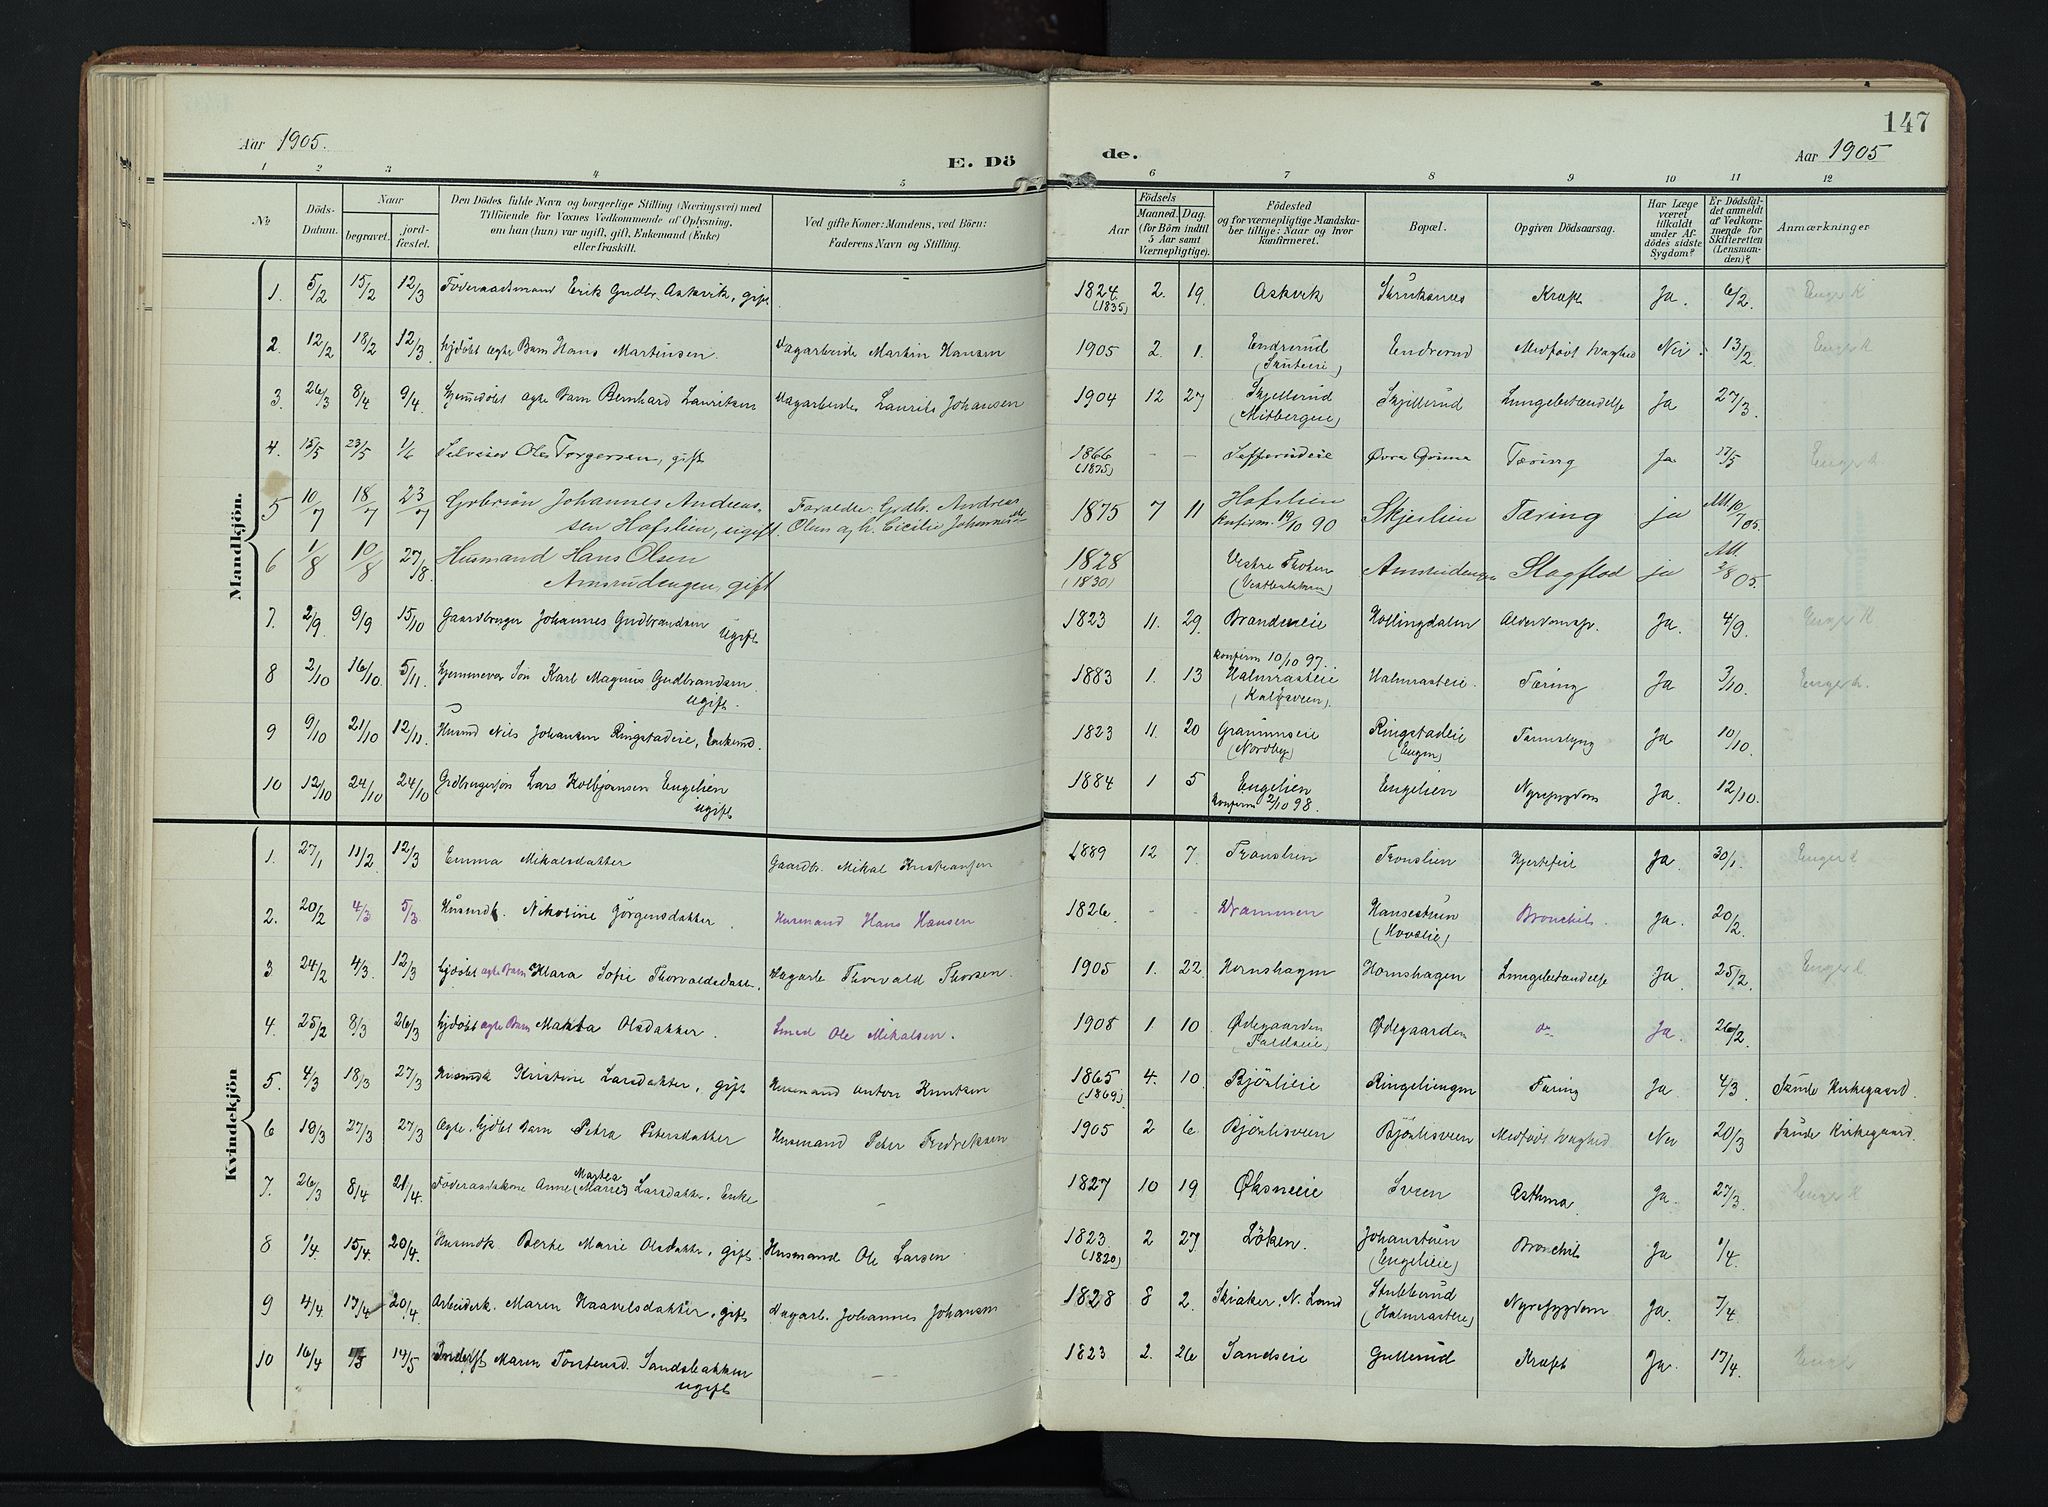 147
Aar 1905.
E. Dö
de.
Aar 1905
1 2 3 4 5 6 7 8 9 10 11 12
№
Döds-Datum.
Naar
begravet.
jord-fæstet.
Den Dödes fulde Navn og borgerlige Stilling (Næringsvei) med
Tilföiende for Voxnes Vedkommende af Oplysning,
om han (hun) var ugift, gift, Enkemand (Enke)
eller fraskilt.
Ved gifte Koner: Mandens, ved Börn:
Faderens Navn og Stilling.
Födsels
Aar
Maaned.
Dag.
(for Börn indtil
5 Aar samt
Værnepligtige).
Födested
og for værnepligtige Mandska-
ber tillige: Naar og hvor
konfirmeret.
Bopæl.
Opgiven Dödsaarsag.
Har Læge
været
tilkaldt
under Af-
dödes sidste
Sygdom?
Er Dödsfal-
det anmeldt
af Vedkom-
mende for
Skifteretten
(Lensman-
den)?
Anmærkninger
Mandkjön.
1. 5/2 15/2 12/3 Föderaadsmand Erik Gudbr. Askvik, gift - 1824 (1835) 2. 19. Askvik Kræft Ja. 6/2. Enger K
2. 12/2 18/2 12/3 hjdöbt ægte Barn Hans Martinsen. Dagarbeider Martin Hansen 1905 2. 1. Endrerud Endrerud Medfödt Svaghed Nei 13/2 Enger K
3. 26/3 8/4 9/4. hjemmedöbt ægte Barn Bernhard Lauritsen Dagarbeider Laurits Johansen 1904 12 27 Skjellerud Skjellerud Lungebetændelse Ja 27/3.
4. 15/5 23/5 1/6 Selveier Ole Torgersen, gift 1866 (1875) - - Tæring Ja 17/5 Enger K
5 10/7 18/7 23/7 Grdbrsön Johannes Andreas-
sen Hofslien, ugift. Forældre Grdbr. Andreas
Olsen og h. Cecilie Johannesdtr 1875 7 11 Hofslien
konfirm. 19/10 90 Skjerlien Tæring ja Att. 10/7 05.
6 1/8 10/8 27/8. Husmand Hans Olsen
Amsrudengen, gift 1828 (1830) Vestre Thoten Amsrudengen Slagflod ja Att. 3/8 05
7. 2/9 9/9 15/10 Gaardbruger Johannes Gudbrandsen
ugift 1823 11. 29. Brandeneie Hollingdalen Alderdomssv. Ja. 4/9. Enger K
8 2/10 16/10 5/11. Hjemmevær. Sön Karl Magnus Gudbrandsen.
ugift. 1883 1. 13 konfirm 10/10 97.
Halmrasteie Halmrasteie. Tæring Ja 3/10. Enger K.
9 9/10 21/10 12/11. Husmd Nils Johansen Ringstadeie, Enkemd. 1823 11. 20 (Nordby) Ringstadeie
(Engen) Ja 10/10.
10 12/10 24/10 24/10 Grdbrugersön Lars Kolbjörnsen Engelien
ugift 1884 1 5 Engelien
konfirm 2/10 98. Engelien Nyresygdom Ja. 12/10.
Kvindekjön
1. 27/1 11/2 12/3 Emma Mikalsdatter Gaardbr. Mikal Kristiansen 1889 12 7. Tronslien Tronslien Hjertefeil Ja. 30/1. Enger K
2. 20/2 4/3 5/3. Husmdk. Nikoline Jörgensdatter. Husmand Hans Hansen 1826. - - Drammen Hansestuen
(Hovslie) Bronchit. Ja. 20/2.
3 24/2 4/3. 12/3 hjdöbt ægte Barn Klara Sofie Thorvaldsdatt. Dagarb. Thorvald Thorsen. 1905 1. 22. Hornshagen Hornshagen Lungebetændelse Ja. 25/2. Enger K
4. 25/2 8/3 26/3 hjdöbt ægte Barn Marta Olsdatter. Smed Ole Mikalsen. 1905 1. 10. Ödegaarden Ödegaarden do Ja. 26/2.
5. 4/3 18/3 27/3 Husmdk Kristine Larsdatter, gift Husmand Anton Knutsen 1865 (1869) 4. 10. Björlieie Ringeliengen Tæring Ja 4/3 Lunde Kirkegaard.
6 19/3 27/3 27/3 Ægte hjdöbt Barn Petra Petersdatter Husmand Peter Fredriksen 1905 2 6. Björlisveen Björlisveen Medfödt Svaghed. Nei 20/3 Lunde Kirkegaard.
7. 26/3 8/4 21/4. Föderaadskone Anne Martea (Marie) Larsdatter. Enke - 1827 10 19 Öksneeie Sveen Asthma. Ja. 27/3. Enger K
8 1/4. 15/4. 20/4. Husmdk Berte Marie Olsdatter, gift. Husmand Ole Larsen 1823 (1820) 2 27 Löken. Johanstuen
(Engelieie) Bronchit Ja 1/4.
9 4/4. 17/4 20/4. Arbeiderk. Maren Haavelsdatter, gift Dagarb. Johannes Johansen 1828 8 2. Skiaker. N. Land Stubberud
(Halmrasteie) Nyresygdom Ja. 7/4.
10 16/4 14/5 Inderst Maren Torstensd. Sandsbakken
ugift 1823 2. 26 Sandseie Gullerud Kræft Ja. 17/4. Enger